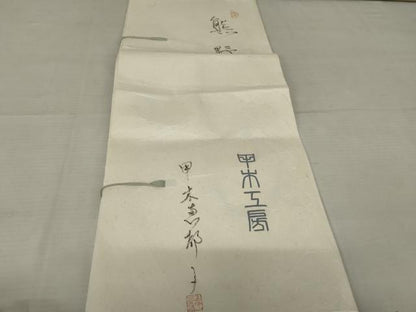 熊野
甲木工房
甲木恵都子